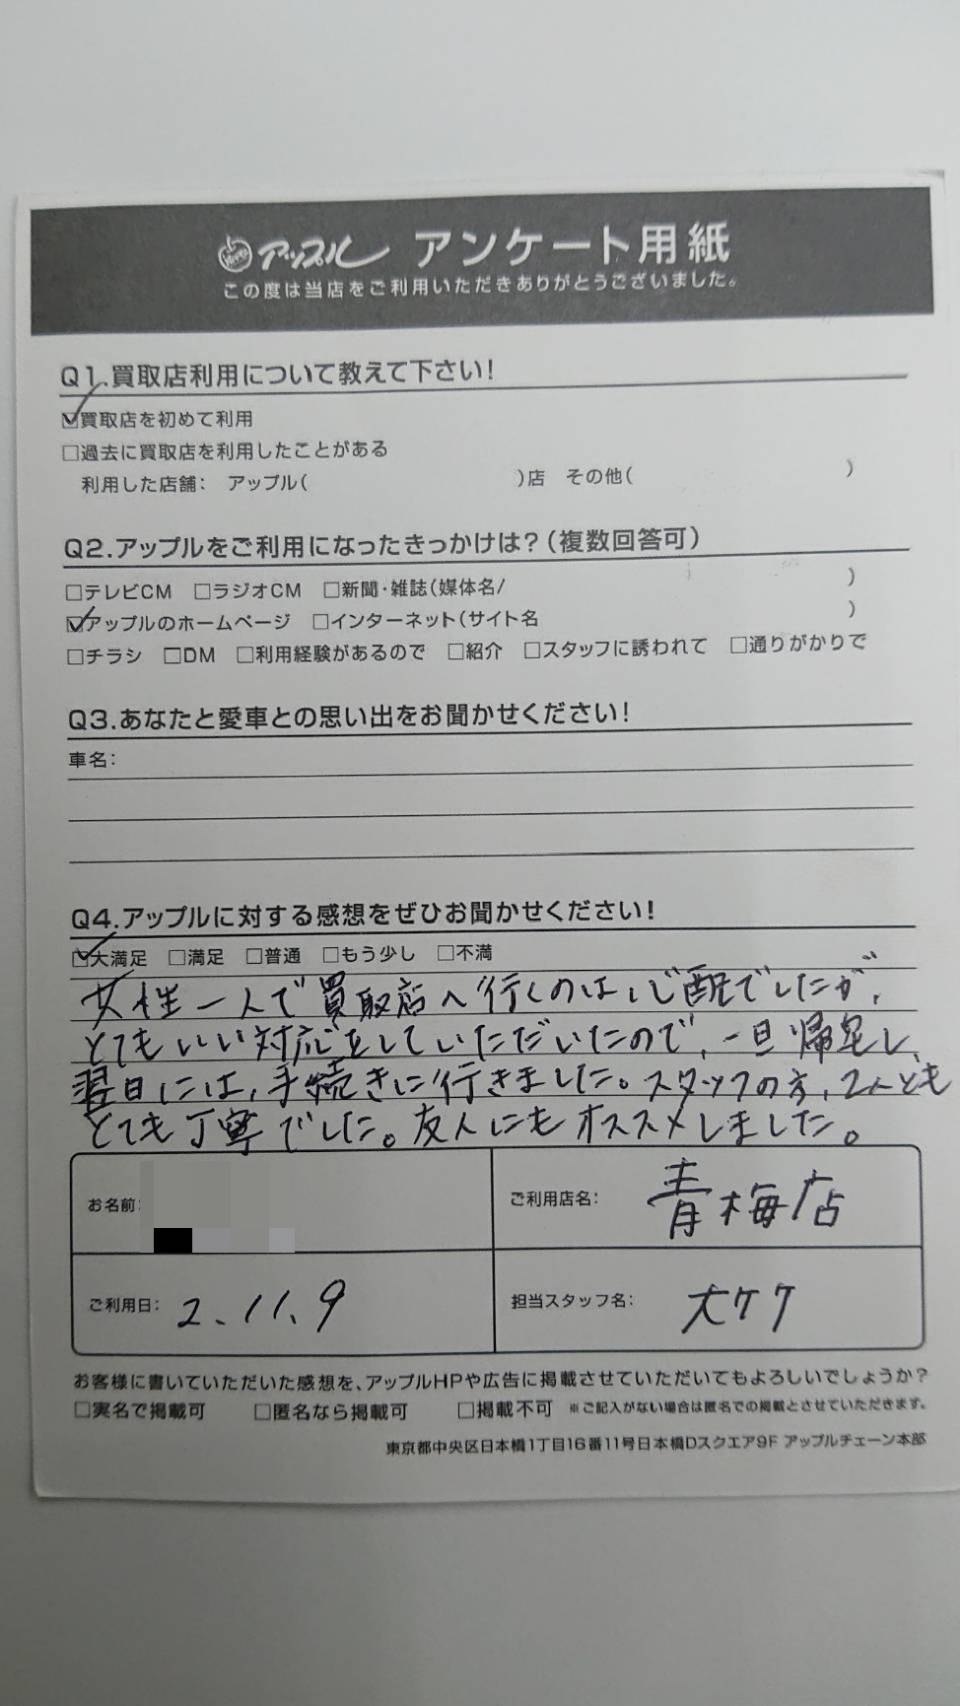 アップル アンケート用紙
この度は当店をご利用いただきありがとうございました。
Q1.買取店利用について教えて下さい!
☑買取店を初めて利用
□過去に買取店を利用したことがある
利用した店舗: アップル( )店 その他( )
Q2.アップルをご利用になったきっかけは?(複数回答可)
□テレビCM □ラジオCM □新聞・雑誌(媒体名/ )
☑アップルのホームページ □インターネット(サイト名 )
□チラシ □DM □利用経験があるので □紹介 □スタッフに誘われて □通りがかりで
Q3.あなたと愛車との思い出をお聞かせください!
車名:
Q4.アップルに対する感想をぜひお聞かせください!
☑大満足 □満足 □普通 □もう少し □不満
女性一人で買取店へ行くのは心配でしたが、
とてもいい対応をしていただいたので、一旦帰宅し、
翌日には、手続きに行きました。スタッフの方、2人とも
とても丁寧でした。友人にもオススメしました。
お名前: ご利用店名: 青梅店
ご利用日: 2.11.9 担当スタッフ名: 大ケケ
お客様に書いていただいた感想を、アップルHPや広告に掲載させていただいてもよろしいでしょうか?
□実名で掲載可 □匿名なら掲載可 □掲載不可 ※ご記入がない場合は匿名での掲載とさせていただきます。
東京都中央区日本橋1丁目16番11号日本橋Dスクエア9F アップルチェーン本部